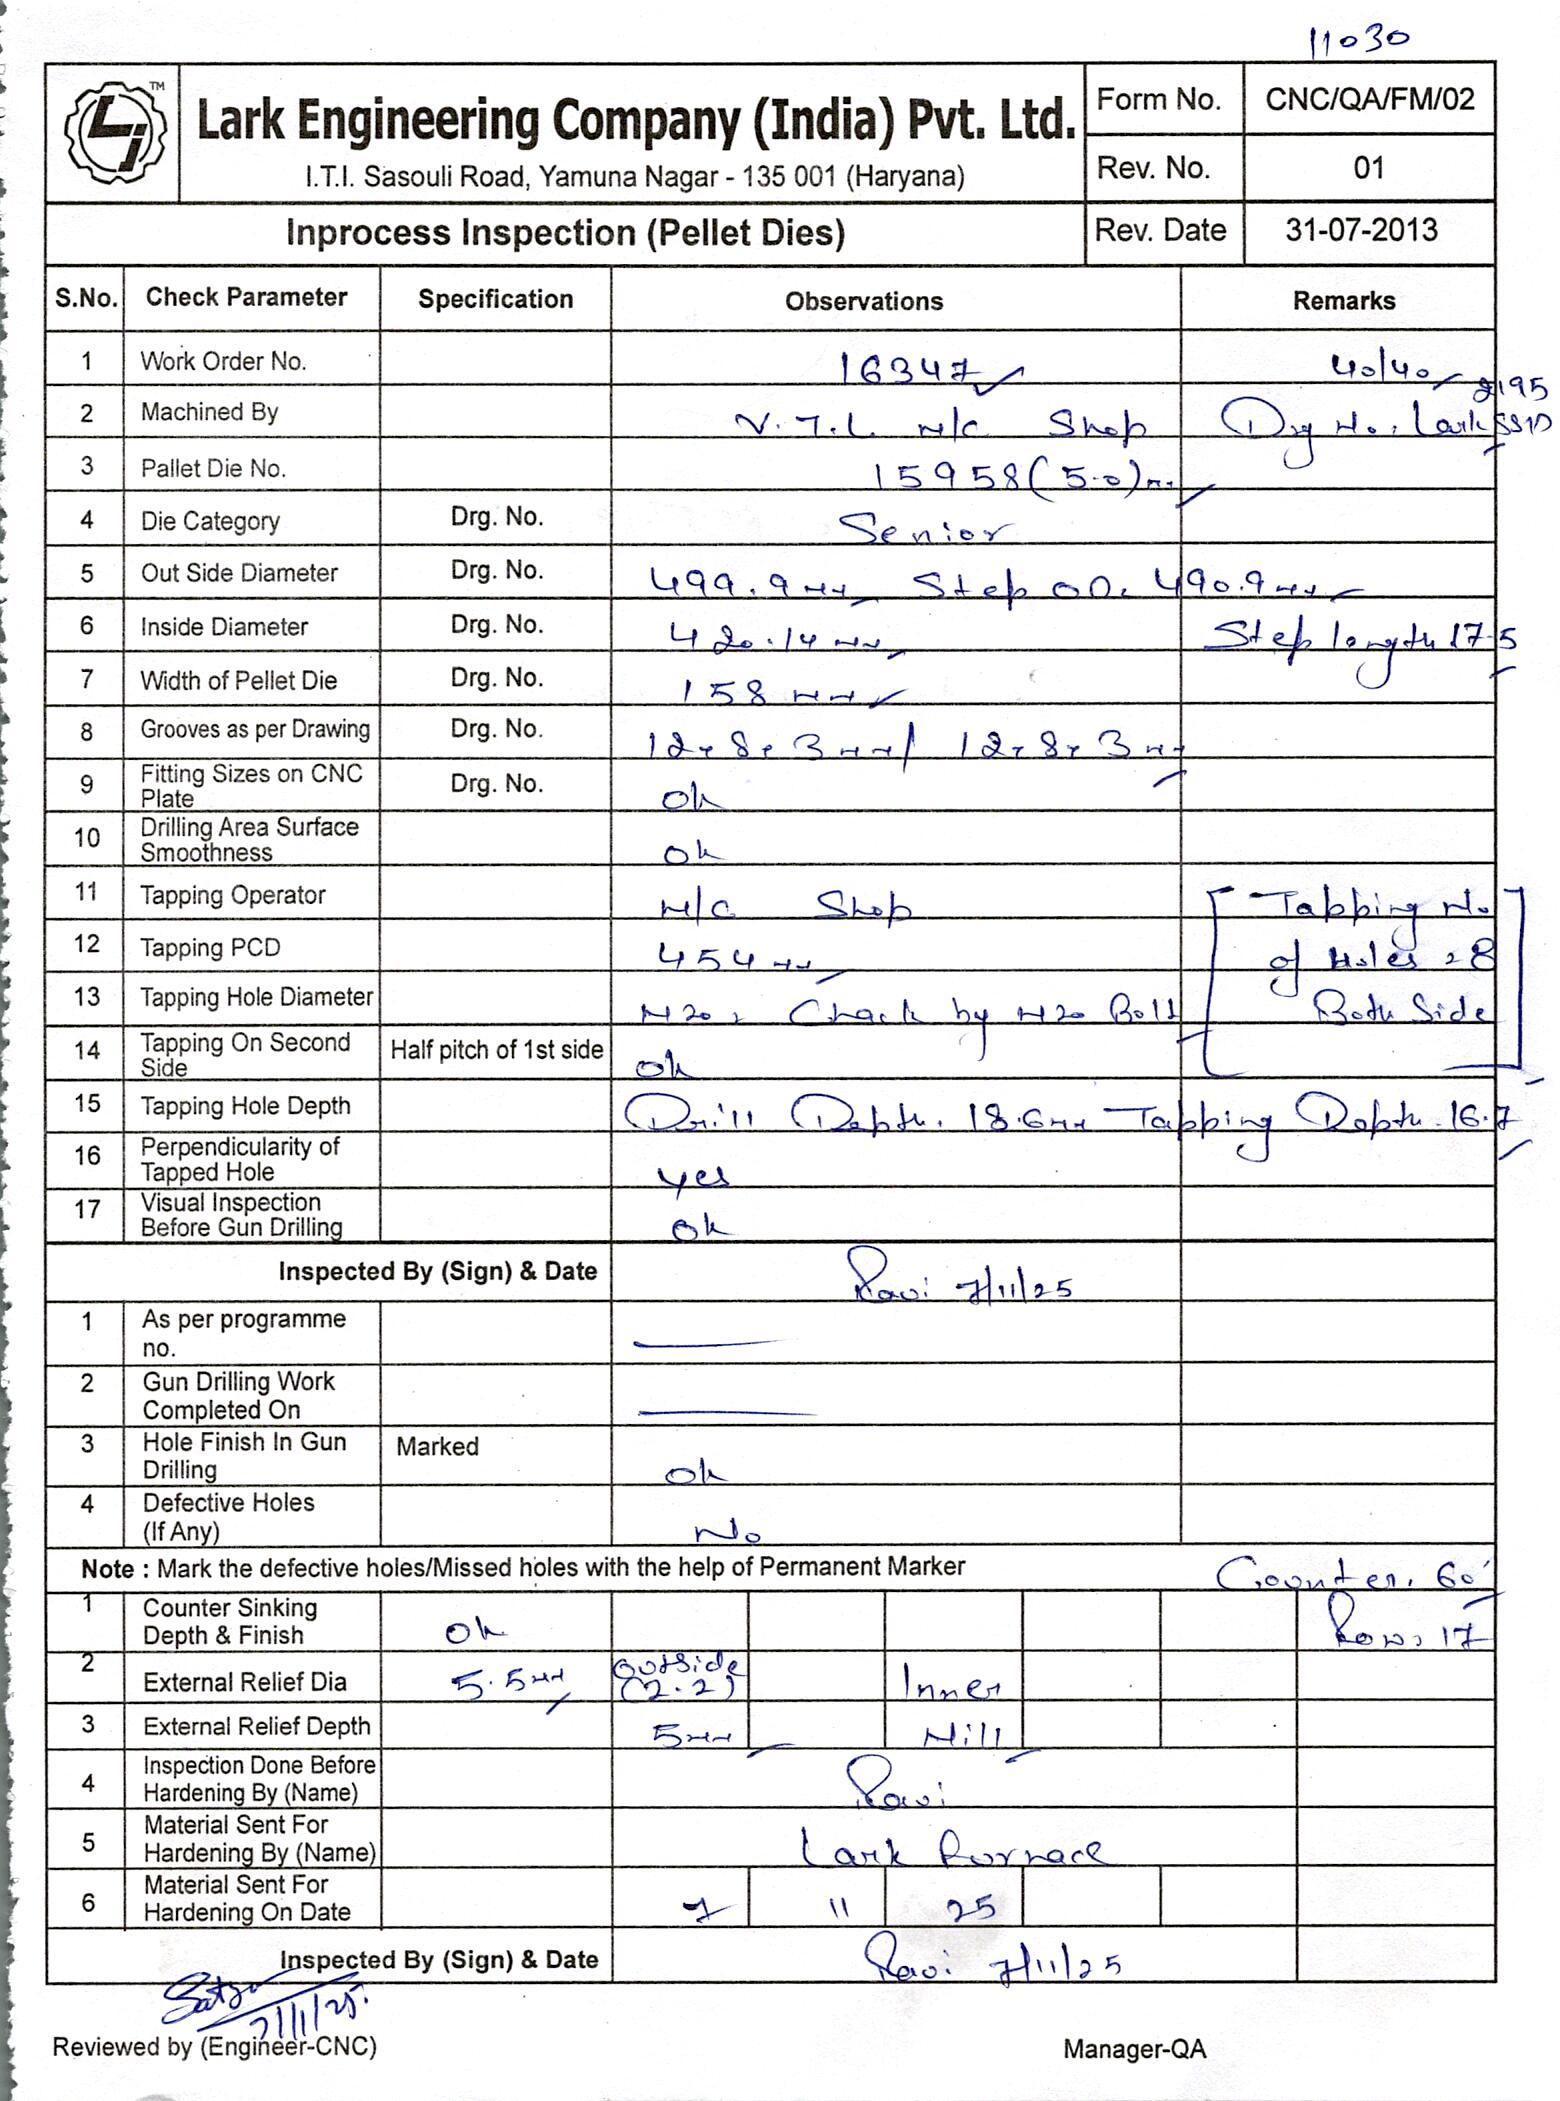 11030
TM
Lark Engineering Company (India) Pvt. Ltd.
I.T.I. Sasouli Road, Yamuna Nagar - 135 001 (Haryana)
Form No. CNC/QA/FM/02
Rev. No. 01
Inprocess Inspection (Pellet Dies) Rev. Date 31-07-2013
S.No. Check Parameter Specification Observations Remarks
1 Work Order No. 16347 40/40
2 Machined By V.T.L M/C Shop Drg No. Lark
3 Pallet Die No. 15958 (5.0)mm
4 Die Category Drg. No. Senior
5 Out Side Diameter Drg. No. 499.9mm Step OD. 490.9mm
6 Inside Diameter Drg. No. 420.14 mm Step length 17.5
7 Width of Pellet Die Drg. No. 158 mm
8 Grooves as per Drawing Drg. No. 12x8x3mm/ 12x8x3mm
9 Fitting Sizes on CNC Plate Drg. No. Ok
10 Drilling Area Surface Smoothness Ok
11 Tapping Operator M/C Shop Tapping No
12 Tapping PCD 454mm of Holes = 8
13 Tapping Hole Diameter M20, Check by M20 Bolt Both Side
14 Tapping On Second Side Half pitch of 1st side Ok
15 Tapping Hole Depth Drill Depth. 18.6mm Tapping Depth. 16.7
16 Perpendicularity of Tapped Hole Yes
17 Visual Inspection Before Gun Drilling Ok
Inspected By (Sign) & Date Ravi 7/11/25
1 As per programme no.
2 Gun Drilling Work Completed On
3 Hole Finish In Gun Drilling Marked Ok
4 Defective Holes (If Any) No
Note : Mark the defective holes/Missed holes with the help of Permanent Marker Counter. 60°
1 Counter Sinking Depth & Finish Ok Row. 17
2 External Relief Dia 5.5mm Outside (2.2) Inner
3 External Relief Depth 5mm Nill
4 Inspection Done Before Hardening By (Name) Ravi
5 Material Sent For Hardening By (Name) Lark Furnace
6 Material Sent For Hardening On Date 7 11 25
Inspected By (Sign) & Date Ravi 7/11/25
7/11/25.
Reviewed by (Engineer-CNC) Manager-QA